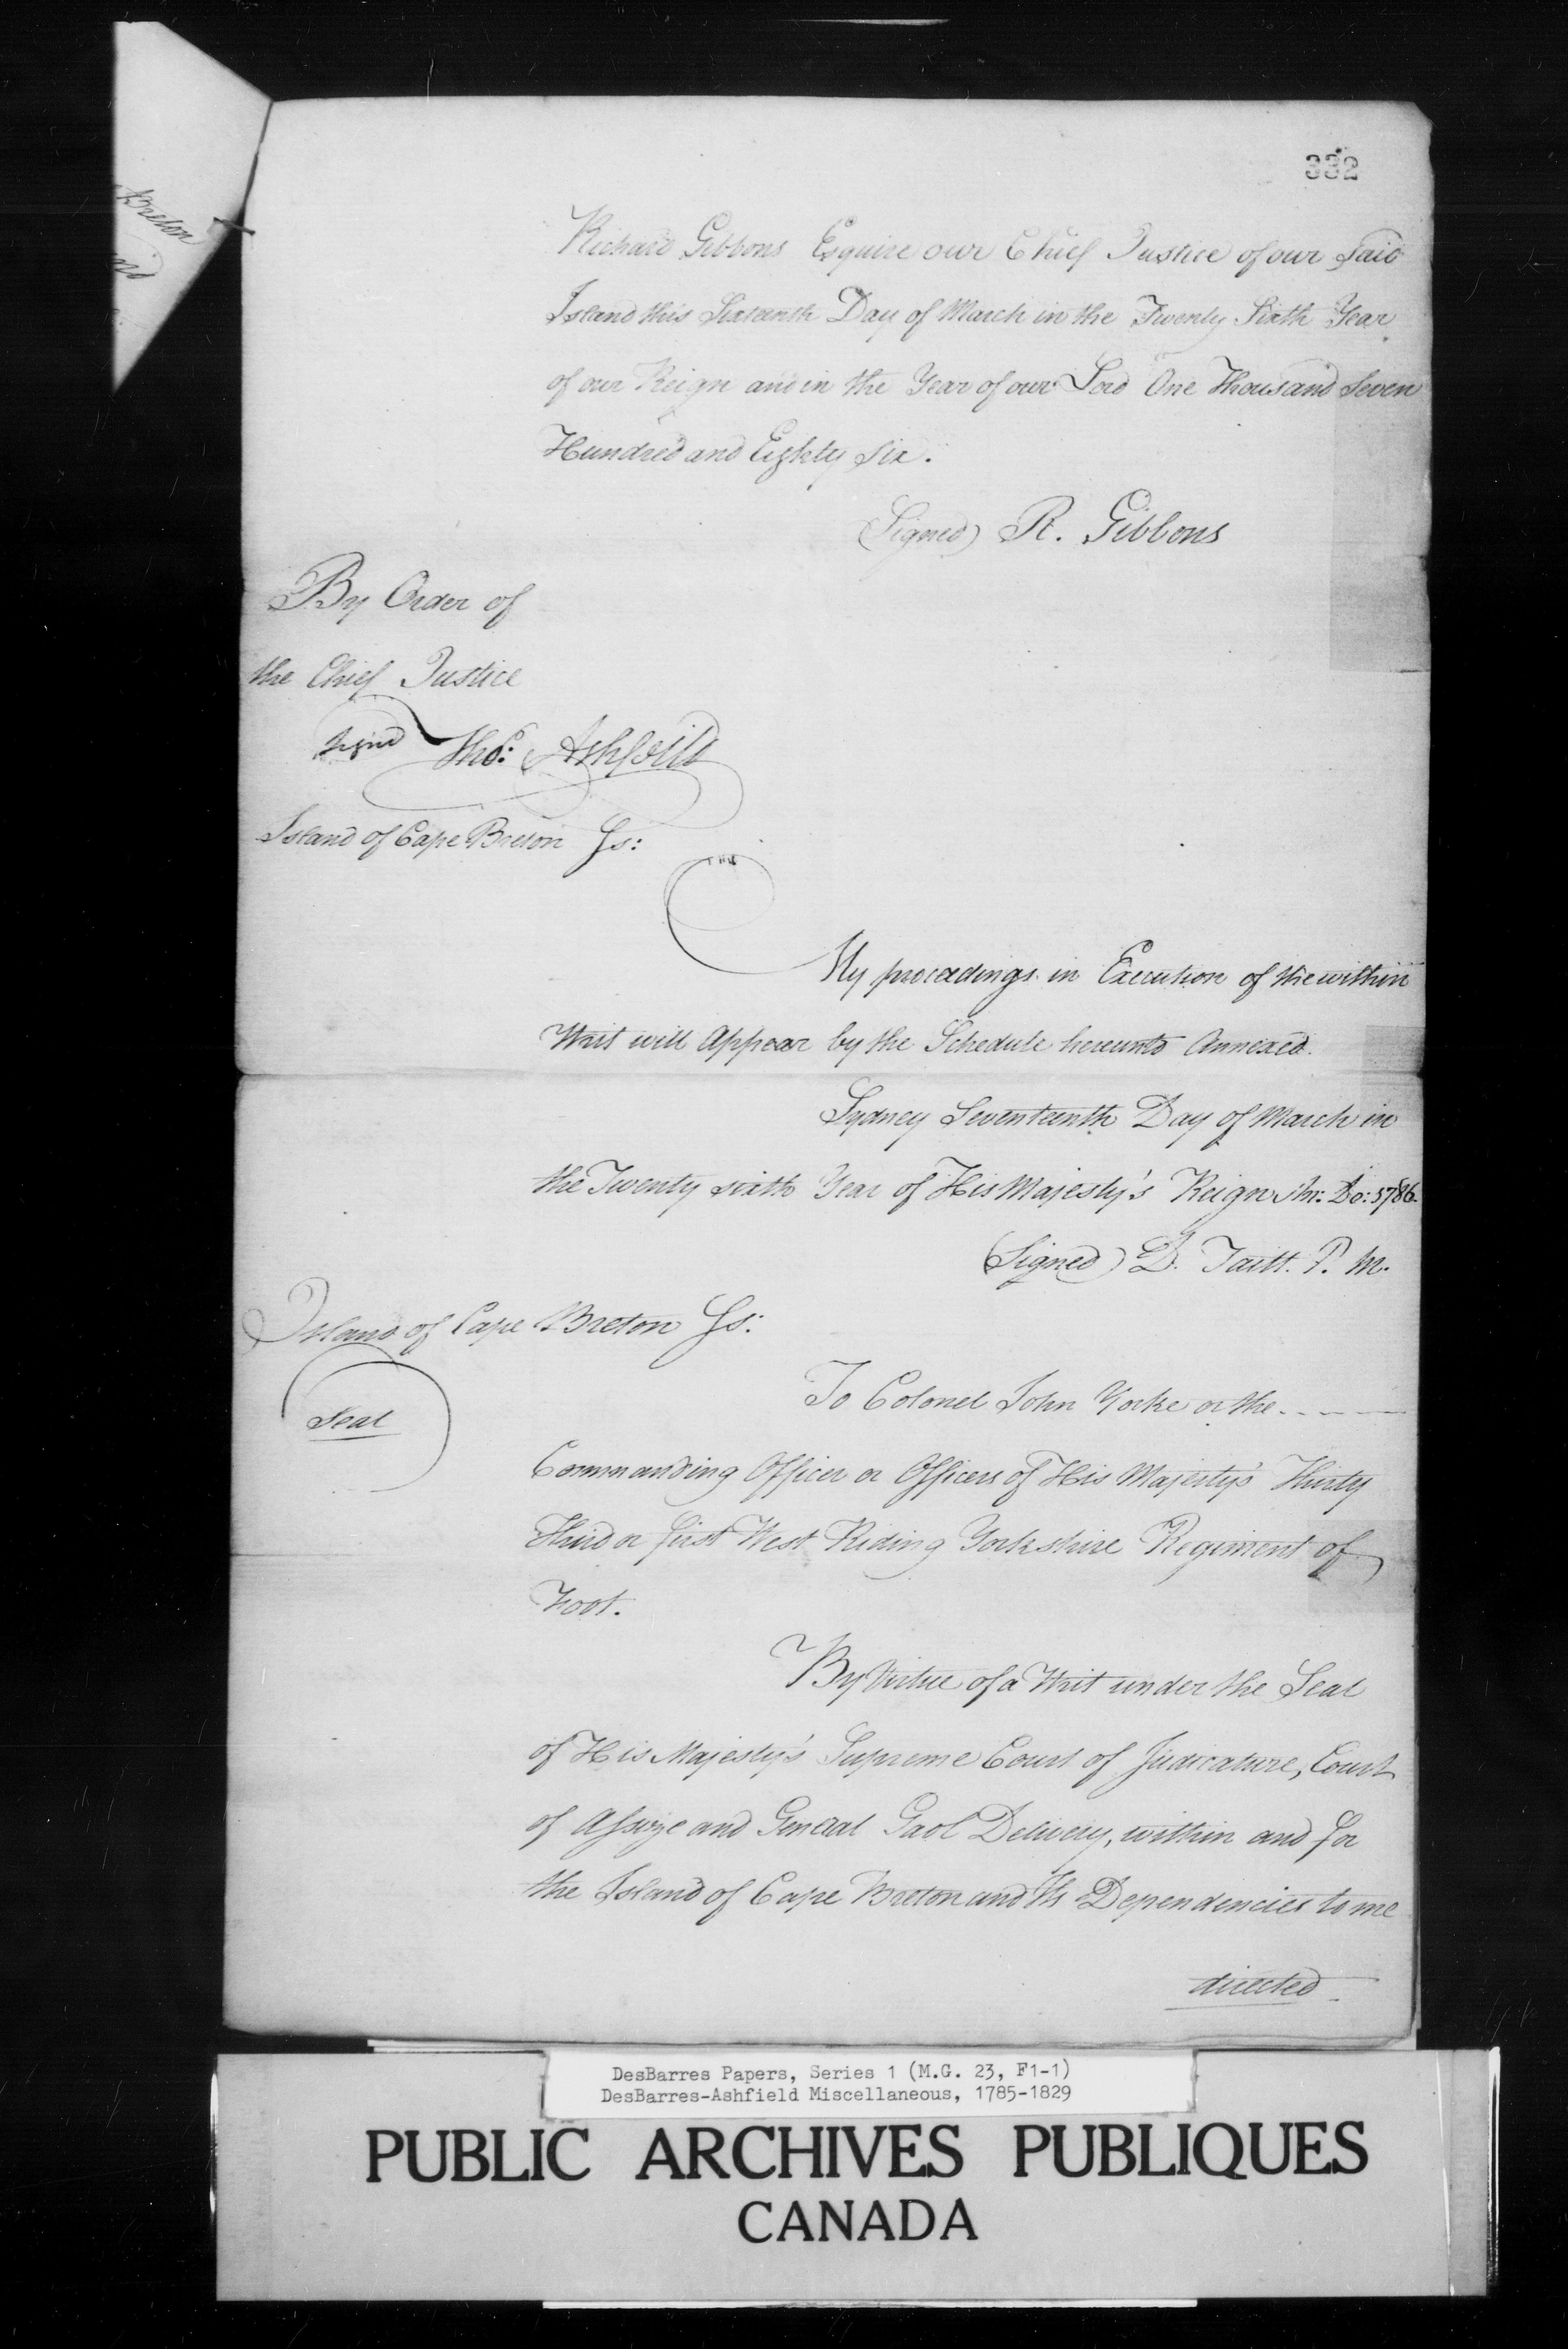 332
Breton
Richard Gibbons Esquire our Chief Justice of our Said
Island this Sixteenth Day of March in the Twenty Sixth Year
of our Reign and in the Year of our Lord One Thousand Seven
Hundred and Eighty Six.
(Signed) R. Gibbons
By Order of
the Chief Justice
Signd Tho.s: Ashfeild
Island of Cape Breton Ss:
My proceedings in Execution of the within
Writ will Appear by the Schedule hereunto Annexed.
Sydney Seventeenth Day of March in
the Twenty sixth Year of His Majesty's Reign An: Do: 1786.
(Signed) D. Taitt. P. M.
Island of Cape Breton Ss:
Seal
To Colonel John Yorke or the
Commanding Officer or Officers of His Majesty's Thirty
Third or first West Riding Yorkshire Regiment of
Foot.
By Virtue of a Writ under the Seal
of His Majesty's Supreme Court of Judicature, Court
of Assize and General Gaol Delivery, within and for
the Island of Cape Breton and Its Dependencies to me
directed
DesBarres Papers, Series 1 (M.G. 23, F1-1)
DesBarres-Ashfield Miscellaneous, 1785-1829
PUBLIC ARCHIVES PUBLIQUES
CANADA